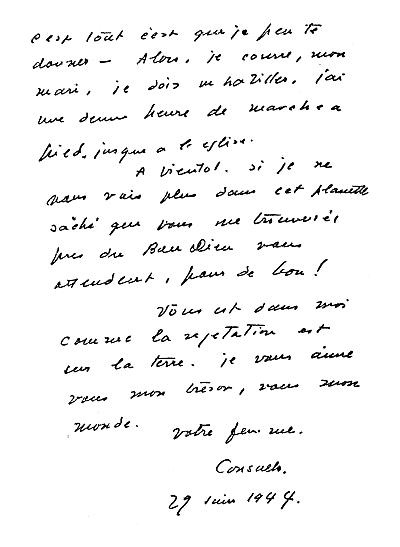 c'est tout c'est que je peu te
donner — Alors, je courre, mon
mari, je dois m habiller, j'ai
une demi heure de marche a
pied, jusque a le eglise.
A bientot. si je ne
vous vois plus dans cet planette
sâché que vous me trouverés
pres du Bon Dieu vous
attendent, pour de bon!
Vous est dans moi
comme la vejetation est
sur la terre. je vous aime
vous mon trésor, vous mon
monde.
votre femme.
Consuelo.
29 Juin 1944.